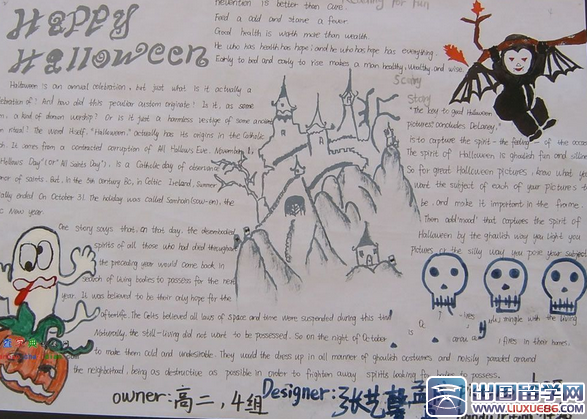 Happy
Halloween
Prevention is better than cure.
Reading for Fun
Feed a cold and starve a fever
Good health is worth more than wealth.
He who has health has hope; and he who has hope has everything.
Early to bed and early to rise makes a man healthy, wealthy and wise.
Scary
Story
Halloween is an annual celebration, but just what is it actually a
celebration of? And how did this peculiar custom originate? Is it, as some
a kind of demon worship? Or is it just a harmless vestige of some ancient
ritual? The word itself, "Halloween," actually has its origins in the Catholic
It comes from a contracted corruption of All Hallows Eve. November 1,
"Hallows Day" (or "All Saints Day"), is a Catholic day of observance
honor of saints. But, in the 5th century BC, in Celtic Ireland, summer
officially ended on October 31. The holiday was called Samhain (sow-en), the
New year.
One story says that, on that day, the disembodied
spirits of all those who had died throughout
the preceding year would come back in
search of living bodies to possess for the next
year. It was believed to be their only hope for the
afterlife. The Celts believed all laws of space and time were suspended during this time
Naturally, the still-living did not want to be possessed. So on the night of October
to make them cold and undesirable. They would the dress up in all manner of ghoulish costumes and noisily paraded around
the neighborhood, being as destructive as possible in order to frighten away spirits looking for bodies to possess.
"The key to good Halloween
pictures," concludes Delaney,
is to capture the spirit - the feeling - of the occasion
The spirit of Halloween is ghoulish fun and silliness
So for great Halloween pictures, know what you
want the subject of each of your pictures
be and make it important in the frame.
Then add mood that captures the spirit of
Halloween by the ghoulish way you light your
Pictures or the silly way you pose your subject
mingle with the living
fires in their homes.
owner:高二,4组
Designer:张艺馨
出国留学网
www.liuxue86.com